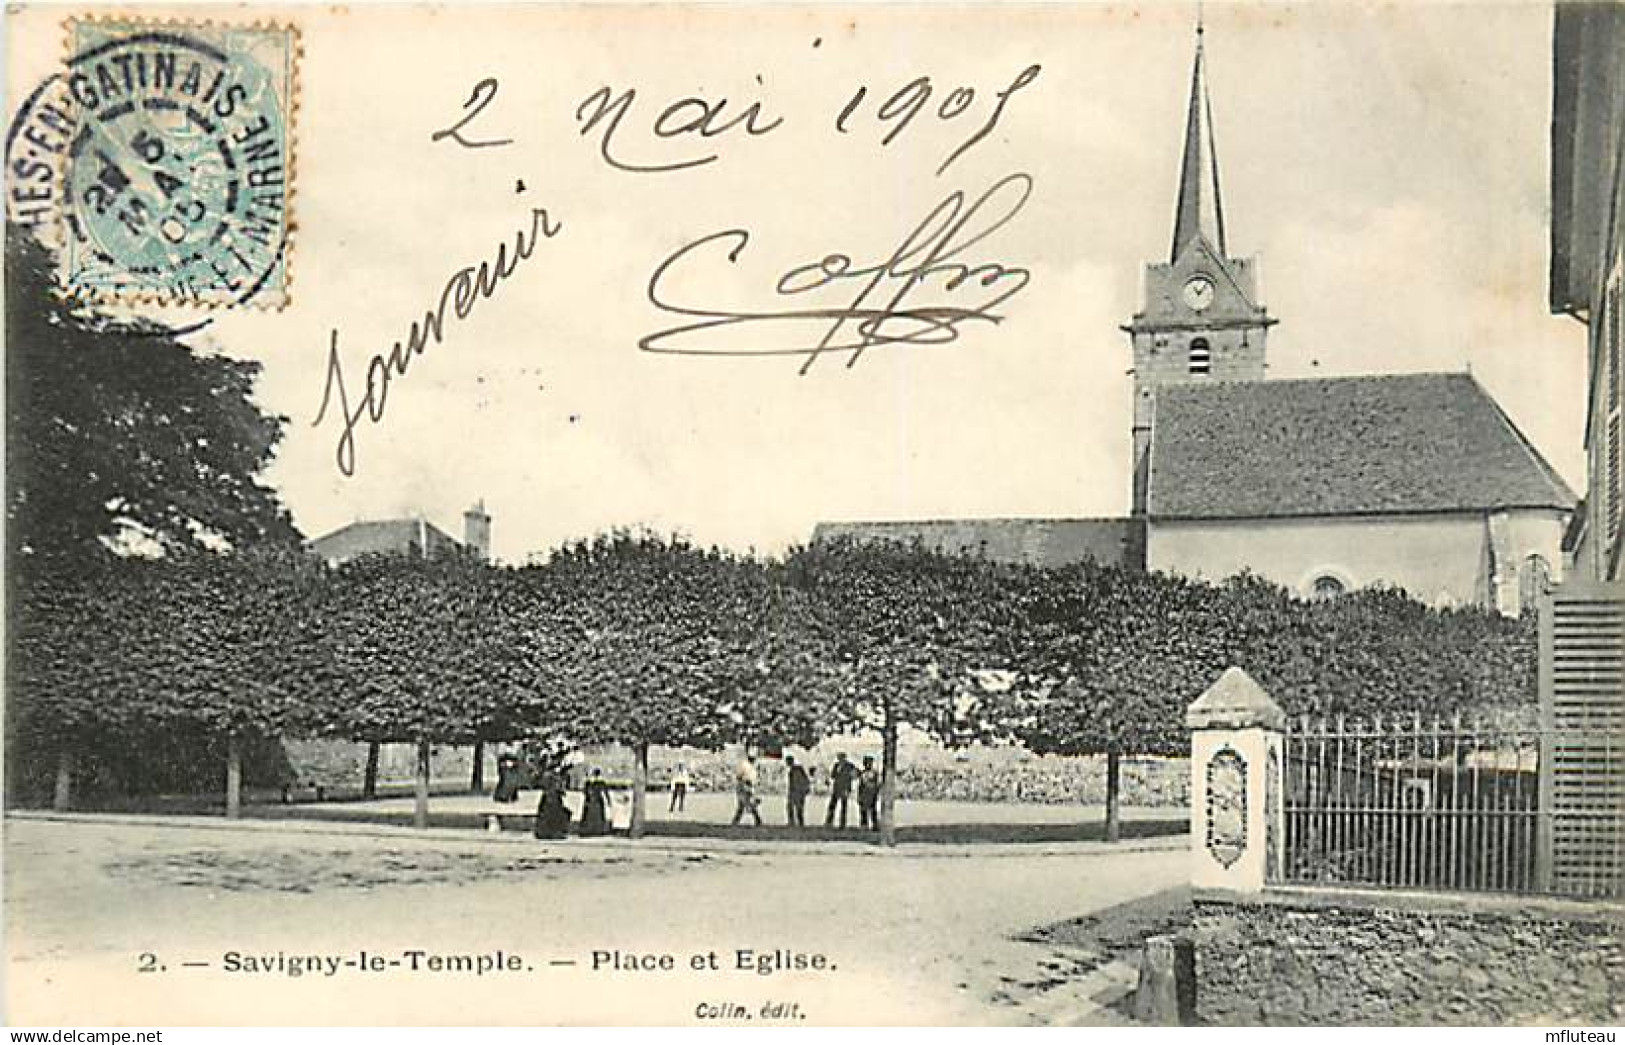 HES·EN·GATINAIS
ET-MARNE
5
MA
05
2 mai 1905
Souvenir
2. — Savigny-le-Temple. — Place et Eglise.
Colin, édit.
mfluteau